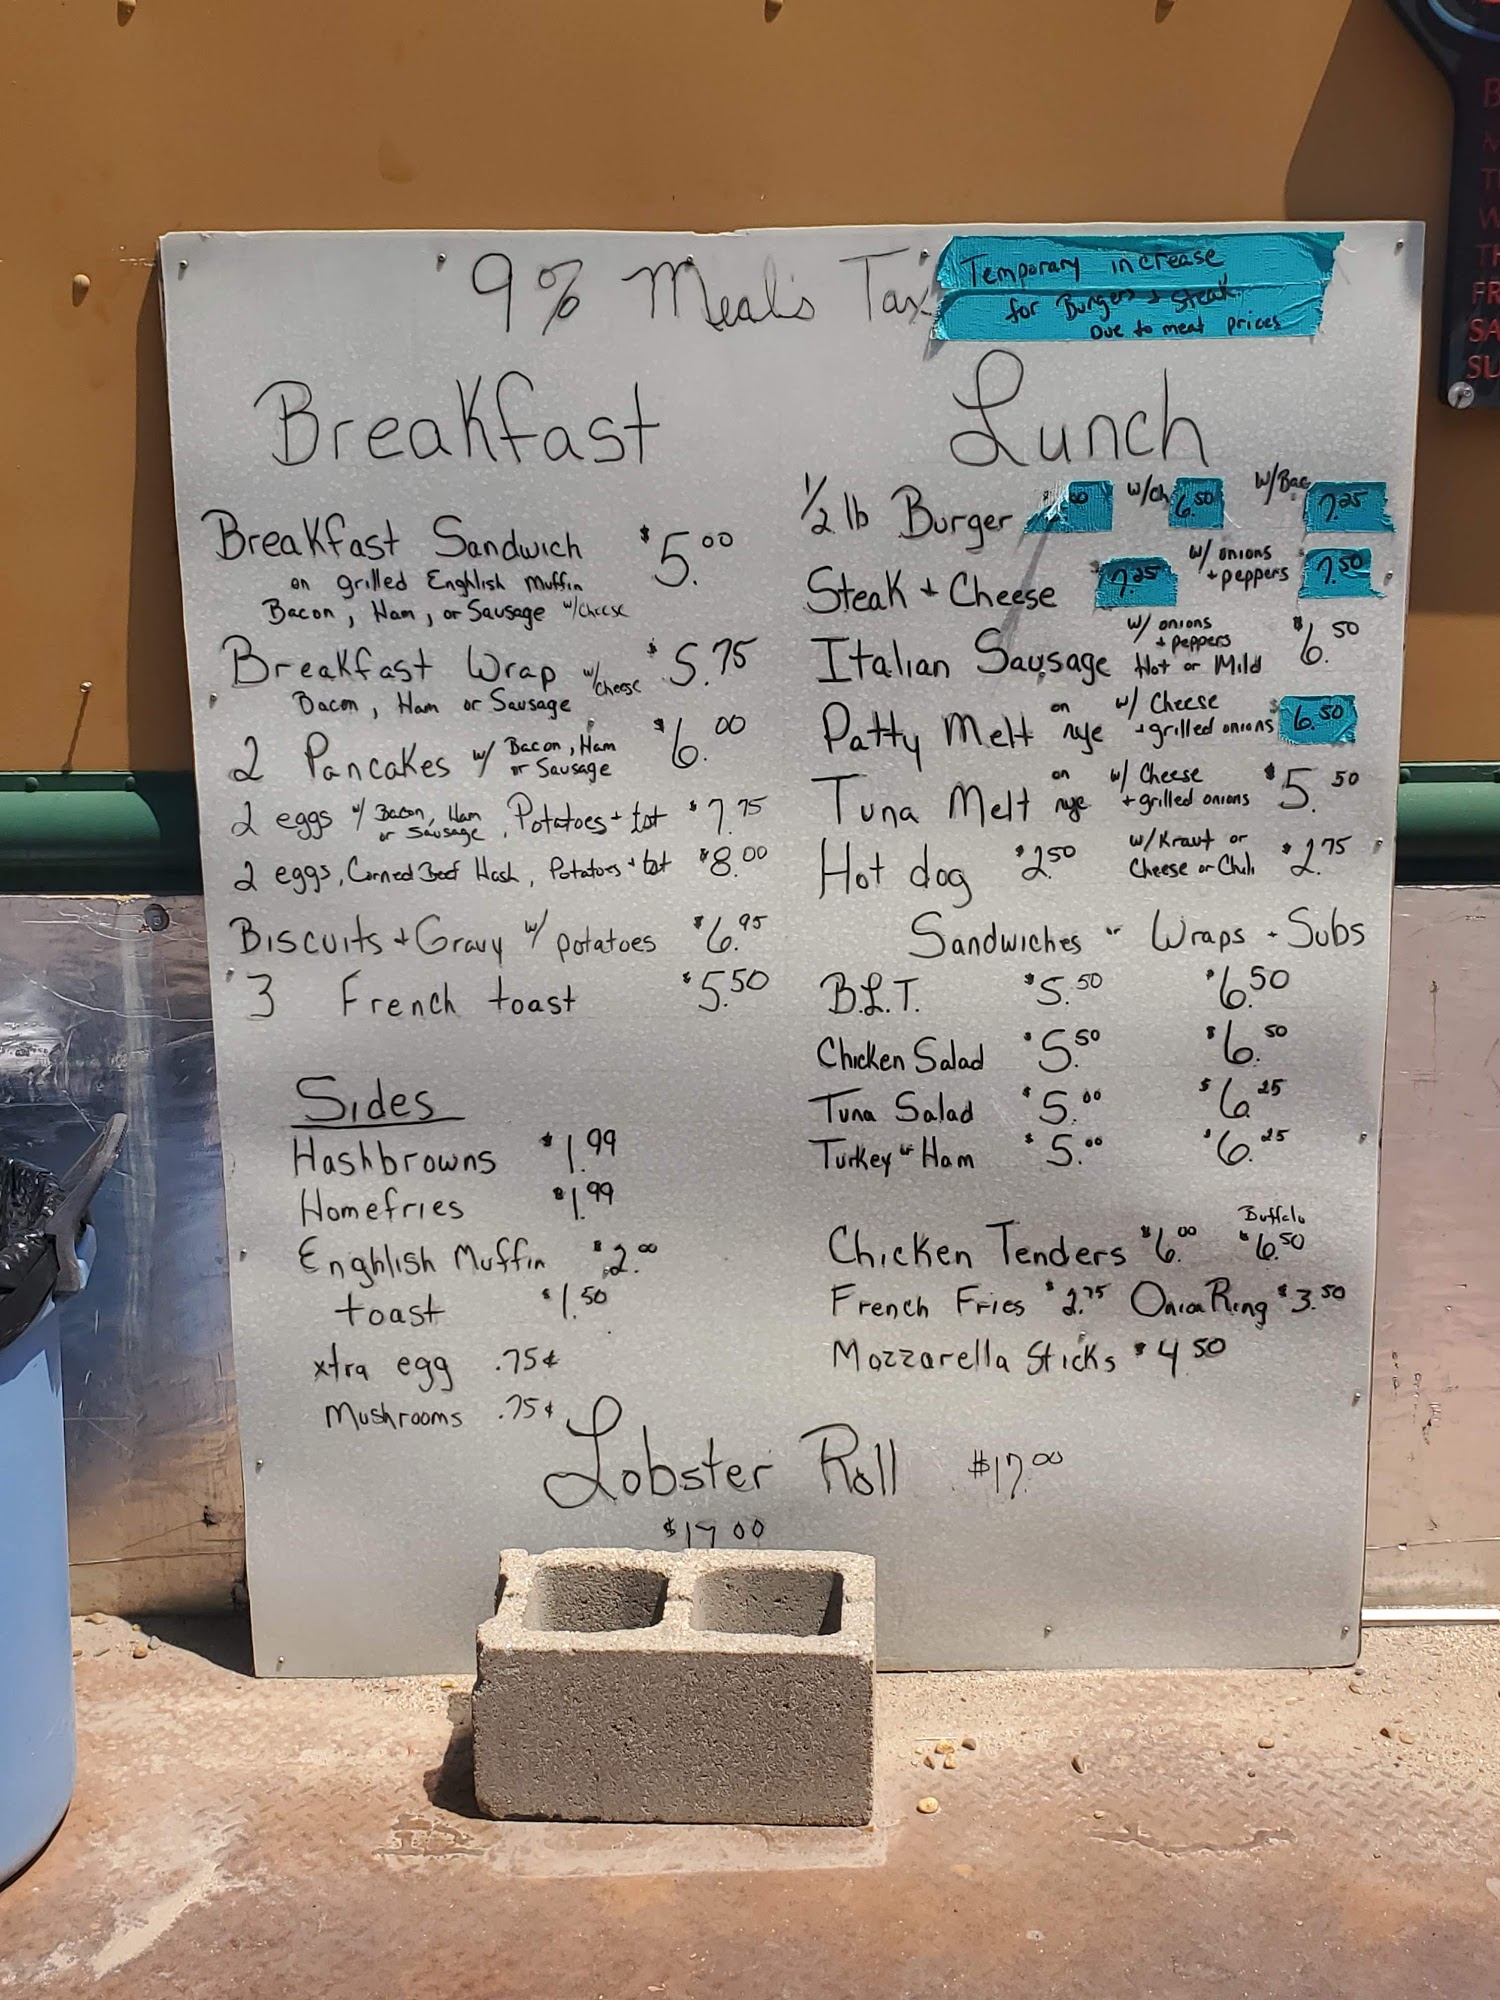 9% Meals Tax
Temporary increase
for Burgers + Steak
Due to meat prices
Breakfast
Breakfast Sandwich $5.00
on grilled Enghlish Muffin
Bacon, Ham, or Sausage w/cheese
Breakfast Wrap w/cheese $5.75
Bacon, Ham or Sausage
2 Pancakes w/ Bacon, Ham or Sausage $6.00
2 eggs w/ Bacon, Ham or Sausage, Potatoes + tst $7.75
2 eggs, Corned Beef Hash, Potatoes + tst $8.00
Biscuits + Gravy w/ potatoes $6.95
3 French toast $5.50
Sides
Hashbrowns $1.99
Homefries $1.99
Enghlish Muffin $2.00
toast $1.50
xtra egg .75¢
Mushrooms .75¢
Lunch
1/2 lb Burger w/ch 6.50 w/Bac 7.25
Steak + Cheese 7.25 w/ onions + peppers 7.50
Italian Sausage w/ onions + peppers Hot or Mild $6.50
Patty Melt on rye w/ Cheese + grilled onions $6.50
Tuna Melt on rye w/ Cheese + grilled onions $5.50
Hot dog $2.50 w/Kraut or Cheese or Chili $2.75
Sandwiches or Wraps - Subs
B.L.T. $5.50 $6.50
Chicken Salad $5.50 $6.50
Tuna Salad $5.00 $6.25
Turkey or Ham $5.00 $6.25
Buffalo
Chicken Tenders $6.00 $6.50
French Fries $2.75 Onion Ring $3.50
Mozzarella Sticks $4.50
Lobster Roll $17.00
$17.00